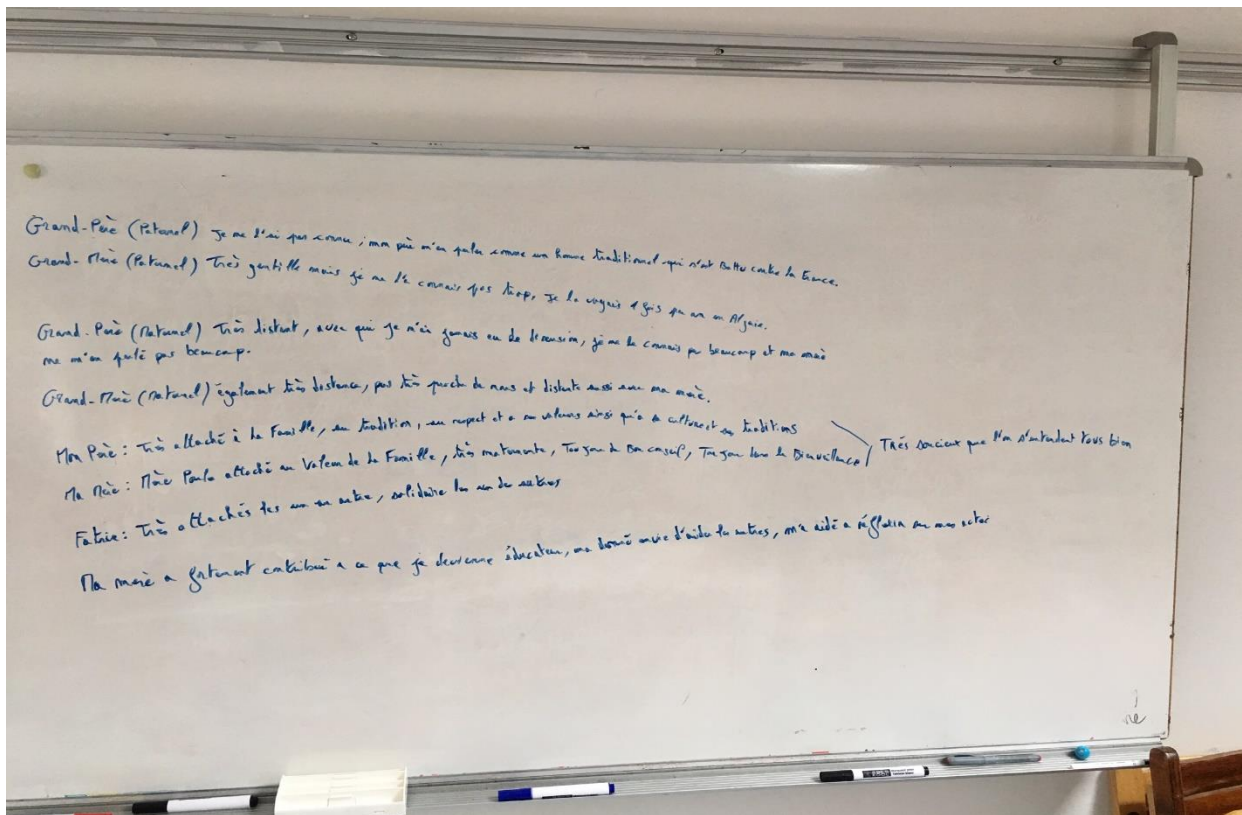 Grand-Père (Paternel) Je ne l'ai pas connu, mon père m'en parle comme un homme traditionnel qui s'est Battu contre la France.
Grand-Mère (Paternel) Très gentille mais je ne la connais pas trop, je la voyais 1 fois par an en Algérie.
Grand-Père (Maternel) Très distant, avec qui je n'ai jamais eu de discussion, je ne le connais pas beaucoup et ma mère
ne m'en parle pas beaucoup.
Grand-Mère (Maternel) également très distance, pas très proche de nous et distante aussi avec ma mère.
Mon Père : Très attaché à la Famille, au tradition, au respect et a ses valeurs ainsi qu'a sa culture et ses traditions
Ma Mère : Mère Poule attaché au Valeur de la Famille, très maternante, Toujours de Bon conseil, Toujours dans la Bienveillance
Très soucieux que l'on s'entendent tous bien
Fatrie : Très attachés les un au autre, solidaire les un des autres
Ma mère a fortement contribué a ce que je devienne éducateur, ma donné envie d'aider les autres, m'a aidé a réfléchir sur mes actes